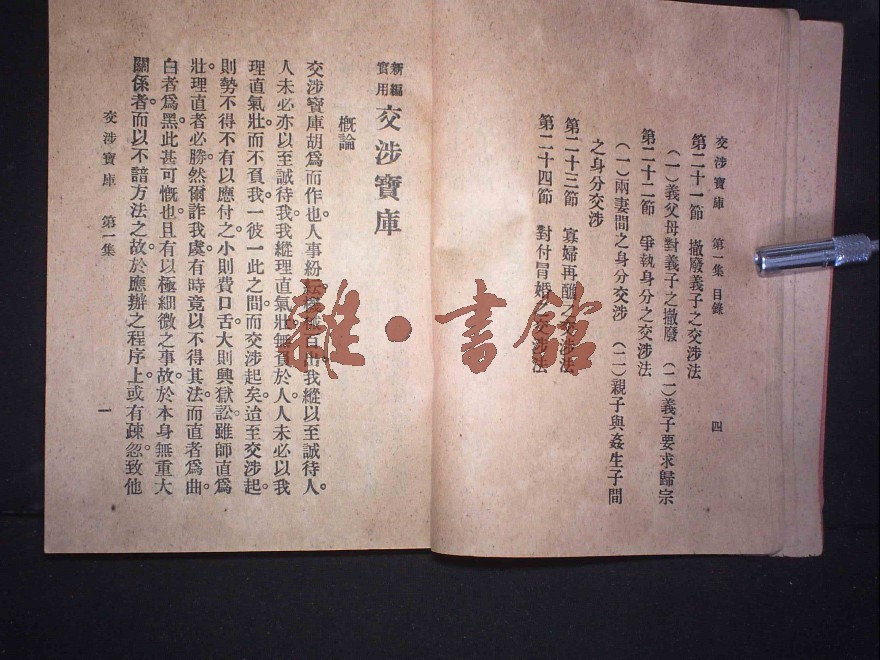 交涉寶庫　第一集 目錄
四
第二十一節　撤廢義子之交涉法
（一）義父母對義子之撤廢　（二）義子要求歸宗
第二十二節　爭執身分之交涉法
（一）兩妻間之身分交涉　（二）親子與姦生子間
之身分交涉
第二十三節　寡婦再醮之交涉法
第二十四節　對付冒婚之交涉法
新編實用 交涉寶庫
概論
交涉寶庫胡爲而作也。人事紛紜。機械百出。我縱以至誠待人。
人未必亦以至誠待我。我縱理直氣壯無負於人。人未必以我
理直氣壯。而不負我。一彼一此之間。而交涉起矣。迨至交涉起。
則勢不得不有以應付之。小則費口舌。大則興獄訟。雖師直爲
壯。理直者必勝。然爾詐我虞。有時竟以不得其法。而直者爲曲。
白者爲黑。此甚可慨也。且有以極細微之事。故於本身無重大
關係者。而以不諳方法之故。於應辦之程序上。或有疎忽。致他
交涉寶庫　第一集
一
雜·書館